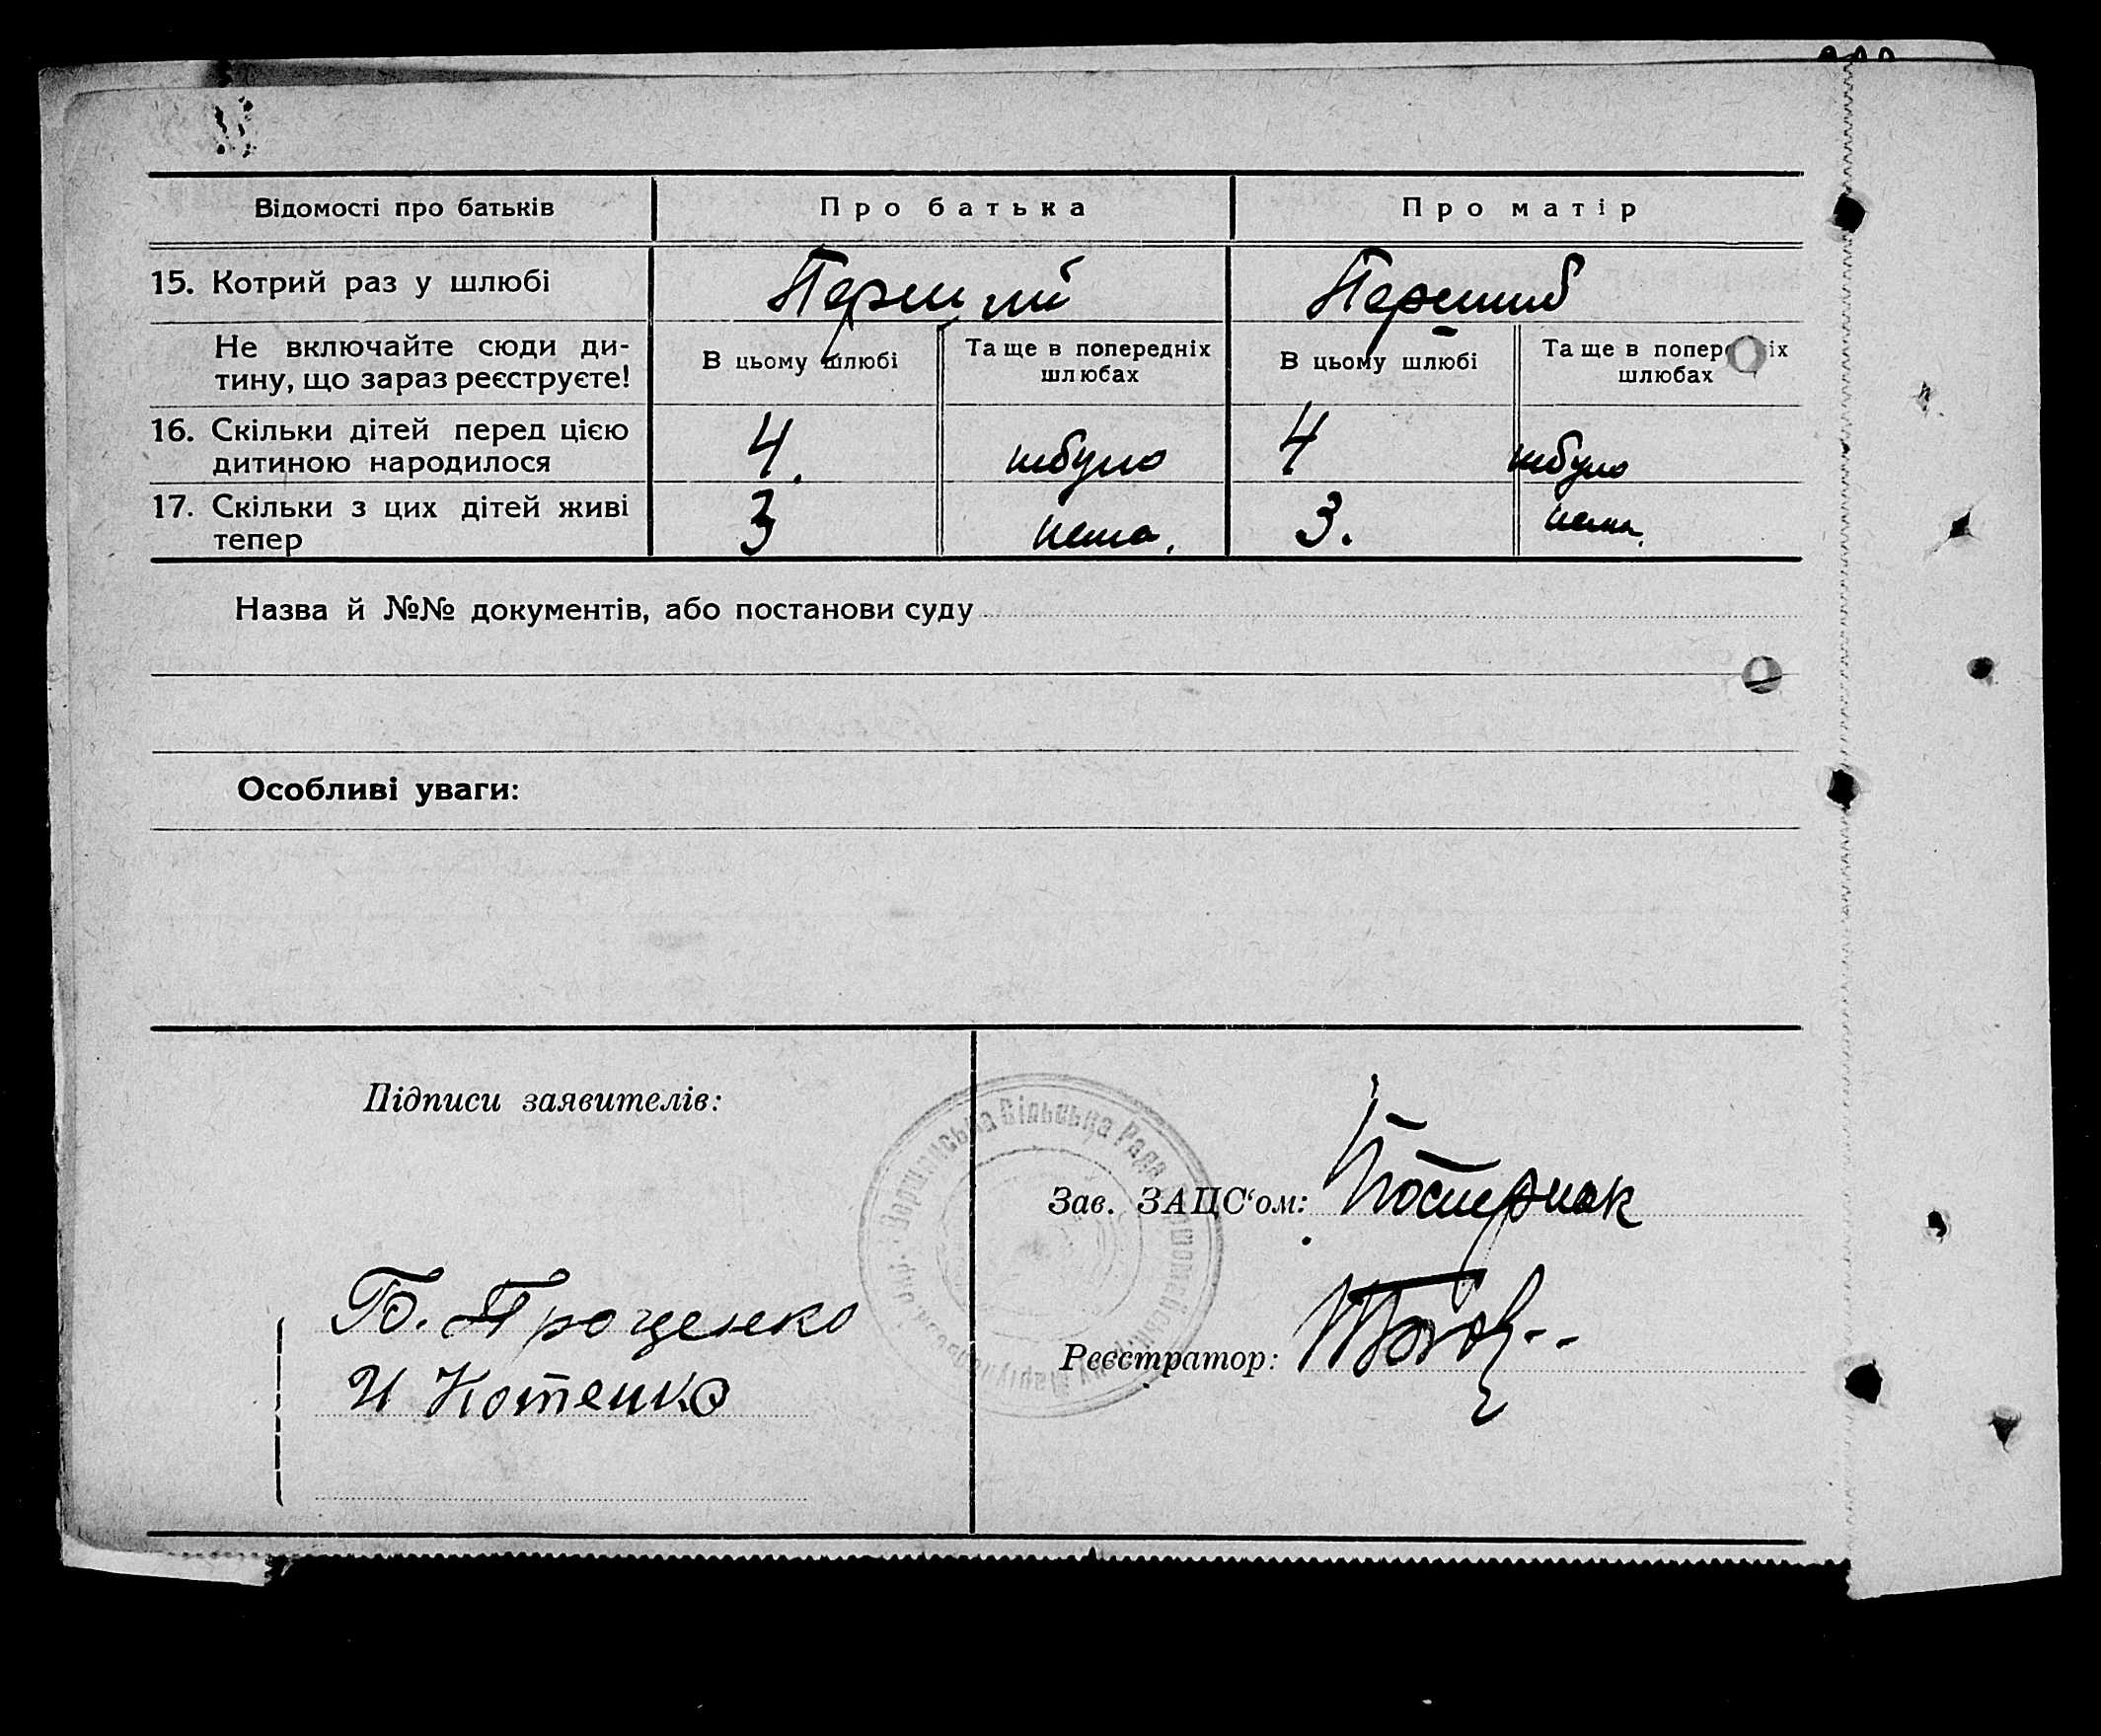 Відомості про батьків
Про батька
Про матір
15. Котрий раз у шлюбі
Перший
Перший
Не включайте сюди ди-
тину, що зараз реєструєте!
В цьому шлюбі
Та ще в попередніх
шлюбах
В цьому шлюбі
Та ще в попер іх
шлюбах
16. Скільки дітей перед цією
дитиною народилося
4.
небуло
4
небуло
17. Скільки з цих дітей живі
тепер
3
нема.
3.
нема.
Назва й №№ документів, або постанови суду
Особливі уваги:
Підписи заявителів:
Сільська Рада
Зав. ЗАЦС‘ом: Постернак
Б. Проценко
И Котенко
Реєстратор: